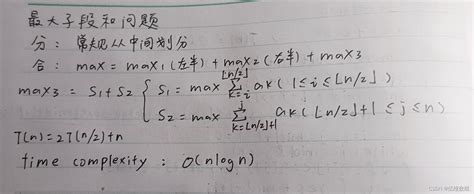 最大子段和问题
分：常规从中间划分
合：max = max1(左半) + max2(右半) + max3
max3 = S1+S2 { S1 = max ∑_{k=i}^{⌊n/2⌋} ak (1≤i≤⌊n/2⌋)
S2 = max ∑_{k=⌊n/2⌋+1}^{j} ak (⌊n/2⌋+1 ≤j≤n)
T(n)=2T(n/2)+n
time complexity : O(nlogn)